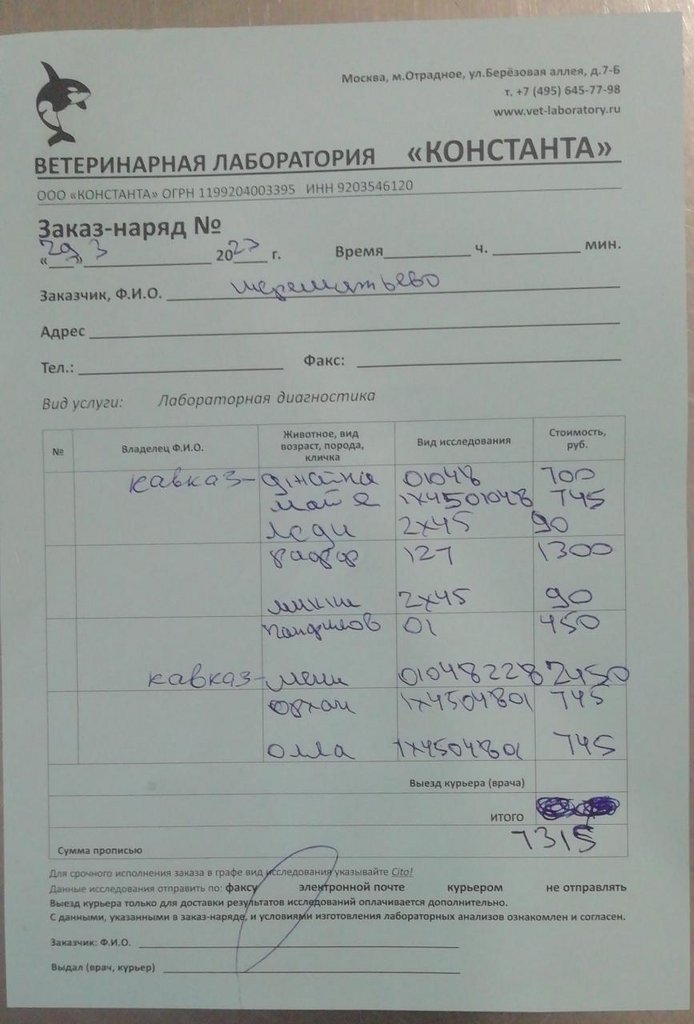 Москва, м.Отрадное, ул.Берёзовая аллея, д.7-Б
т. +7 (495) 645-77-98
www.vet-laboratory.ru
ВЕТЕРИНАРНАЯ ЛАБОРАТОРИЯ «КОНСТАНТА»
ООО «КОНСТАНТА» ОГРН 1199204003395 ИНН 9203546120
Заказ-наряд №
«29» 3 2023 г. Время ч. мин.
Заказчик, Ф.И.О. шереметьево
Адрес
Тел.: Факс:
Вид услуги: Лабораторная диагностика
№ Владелец Ф.И.О. Животное, вид возраст, порода, кличка Вид исследования Стоимость, руб.
кавказ- 01048 700
1х4501048 745
леди 2х45 90
127 1300
2х45 90
панфилов 01 450
кавказ- 01048228 2450
орхан 1х4504801 745
олла 1х4504801 745
Выезд курьера (врача)
ИТОГО
7315
Сумма прописью
Для срочного исполнения заказа в графе вид исследования указывайте Cito!
Данные исследования отправить по: факсу электронной почте курьером не отправлять
Выезд курьера только для доставки результатов исследований оплачивается дополнительно.
С данными, указанными в заказ-наряде, и условиями изготовления лабораторных анализов ознакомлен и согласен.
Заказчик: Ф.И.О.
Выдал (врач, курьер)